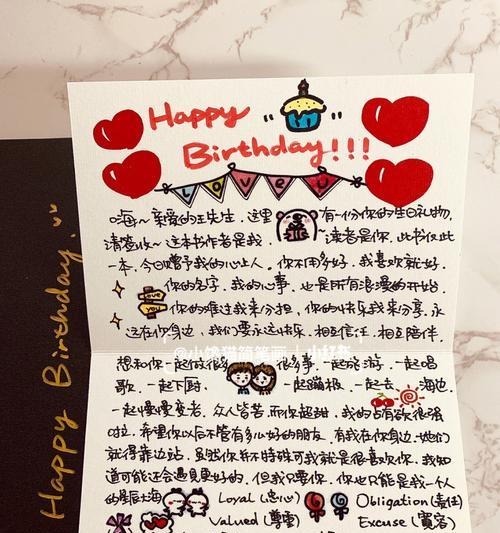 Happy
Birthday!!!
Love U
嗨~亲爱的王先生，这里有一份你的生日礼物，
请签收~这本书作者是我，~读者是你，此书仅此
一本，今日赠予我的心上人。你不用多好，我喜欢就好。
你的名字，我的心事，也是所有浪漫的开始
love
you
你的难过我来分担，你的快乐我来分享，永
远在你身边，我们要永远快乐，相互信任，相互陪伴。
@小馋猫简笔画
想和你一起做很多很多事，一起旅游，一起唱
歌，一起下厨，一起蹦极，一起去海边，
一起慢慢变老，众人皆苦，而你超甜，我的占有欲很强
啦，希望你以后不管有多么好的朋友，有我在你身边，她们
就得靠边站，虽然你不特殊可我就是很喜欢你，我知
道可能还会遇见更好的，但我只要你，你也只能是我一人
的星辰大海
Loyal (忠心)
Obligation (责任)
Valued (尊重)
Excuse (宽容)
Happy Birthday.